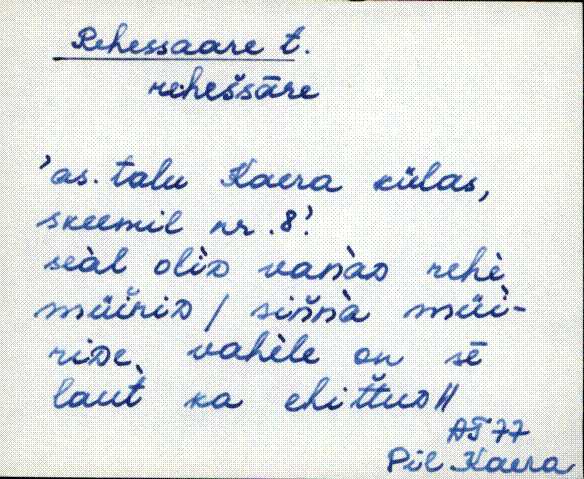 Rehessaare t.
rehešsāre
'as. talu Kaera külas,
skeemil nr. 8.'
seàl oliD vanàD rehè
müìriD / sišnnà müì-
riDe vahèle on sē
laut̀ ka ehit̆tuD //
AŤ 77
Pil Kaera